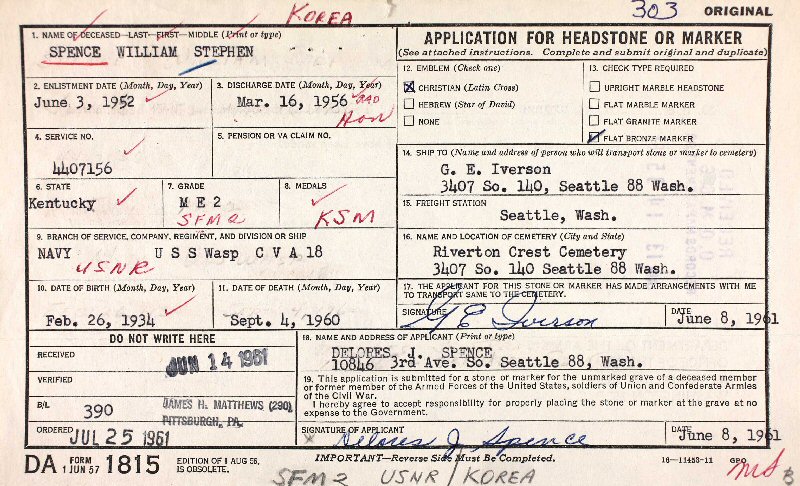 KOREA
303 ORIGINAL
1. NAME OF DECEASED—LAST—FIRST—MIDDLE (Print or type)
SPENCE WILLIAM STEPHEN
2. ENLISTMENT DATE (Month, Day, Year)
June 3, 1952
3. DISCHARGE DATE (Month, Day, Year)
Mar. 16, 1956
Hon
4. SERVICE NO.
4407156
5. PENSION OR VA CLAIM NO.
6. STATE
Kentucky
7. GRADE
M E 2
SFM2
8. MEDALS
KSM
9. BRANCH OF SERVICE, COMPANY, REGIMENT, AND DIVISION OR SHIP
NAVY U S S Wasp C V A 18
USNR
10. DATE OF BIRTH (Month, Day, Year)
Feb. 26, 1934
11. DATE OF DEATH (Month, Day, Year)
Sept. 4, 1960
APPLICATION FOR HEADSTONE OR MARKER
(See attached instructions. Complete and submit original and duplicate)
12. EMBLEM (Check one)
CHRISTIAN (Latin Cross)
HEBREW (Star of David)
NONE
13. CHECK TYPE REQUIRED
UPRIGHT MARBLE HEADSTONE
FLAT MARBLE MARKER
FLAT GRANITE MARKER
FLAT BRONZE MARKER
14. SHIP TO (Name and address of person who will transport stone or marker to cemetery)
G. E. Iverson
3407 So. 140, Seattle 88 Wash.
15. FREIGHT STATION
Seattle, Wash.
16. NAME AND LOCATION OF CEMETERY (City and State)
Riverton Crest Cemetery
3407 So. 140 Seattle 88 Wash.
17. THE APPLICANT FOR THIS STONE OR MARKER HAS MADE ARRANGEMENTS WITH ME
TO TRANSPORT SAME TO THE CEMETERY.
SIGNATURE G E Iverson
DATE June 8, 1961
DO NOT WRITE HERE
RECEIVED JUN 14 1961
VERIFIED
B/L 390 JAMES H. MATTHEWS (290)
PITTSBURGH, PA.
ORDERED JUL 25 1961
18. NAME AND ADDRESS OF APPLICANT (Print or type)
DELORES J. SPENCE
10846 3rd Ave. So. Seattle 88, Wash.
19. This application is submitted for a stone or marker for the unmarked grave of a deceased member
or former member of the Armed Forces of the United States, soldiers of Union and Confederate Armies
of the Civil War.
I hereby agree to accept responsibility for properly placing the stone or marker at the grave at no
expense to the Government.
SIGNATURE OF APPLICANT
Delores J Spence
DATE June 8, 1961
DA FORM 1 JUN 57 1815 EDITION OF 1 AUG 56, IS OBSOLETE.
IMPORTANT—Reverse Side Must Be Completed.
16—11453-11 GPO
SFM2 USNR/KOREA